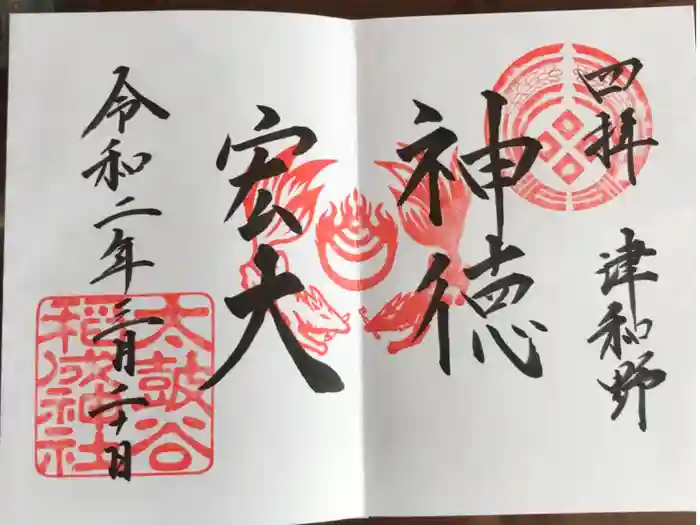 四拝
津和野
神徳
宏大
令和二年三月二十日
太皷谷
稲成神社